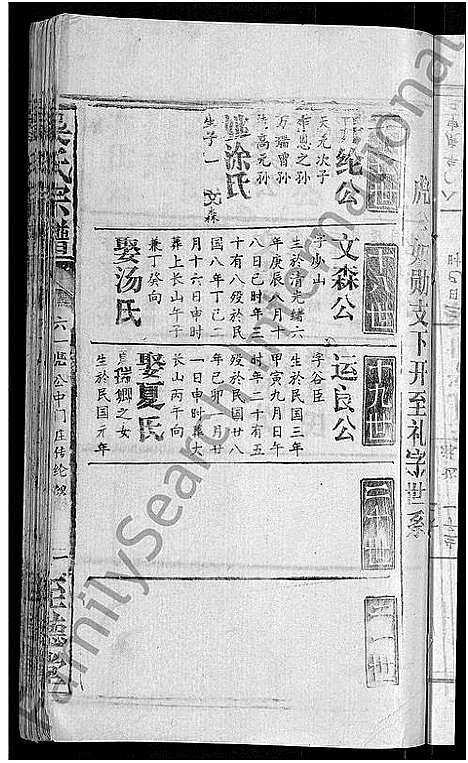 虎公如勋支下开至礼字世系
纶公
天元次子
季恩之孙
万瑞曾孙
高元孙
涂氏
生子一 文森
十八世
文森公
字少山
生於清光绪六
年庚辰八月十
八日己时年三
十有八殁於民
国八年丁己二
月十六日申时
葬上长山午子
兼丁癸向
娶汤氏
十九世
运良公
字谷臣
生於民国三年
甲寅九月日午
时年二十有五
殁於民国廿八
年己卯八月廿
一日申时葬大
长山丙午向
娶夏氏
瑞卿之女
生於民国元年
二十世
二十一世
吴氏宗谱
六一公中门庄传纶
一
至德堂
FamilySearch International